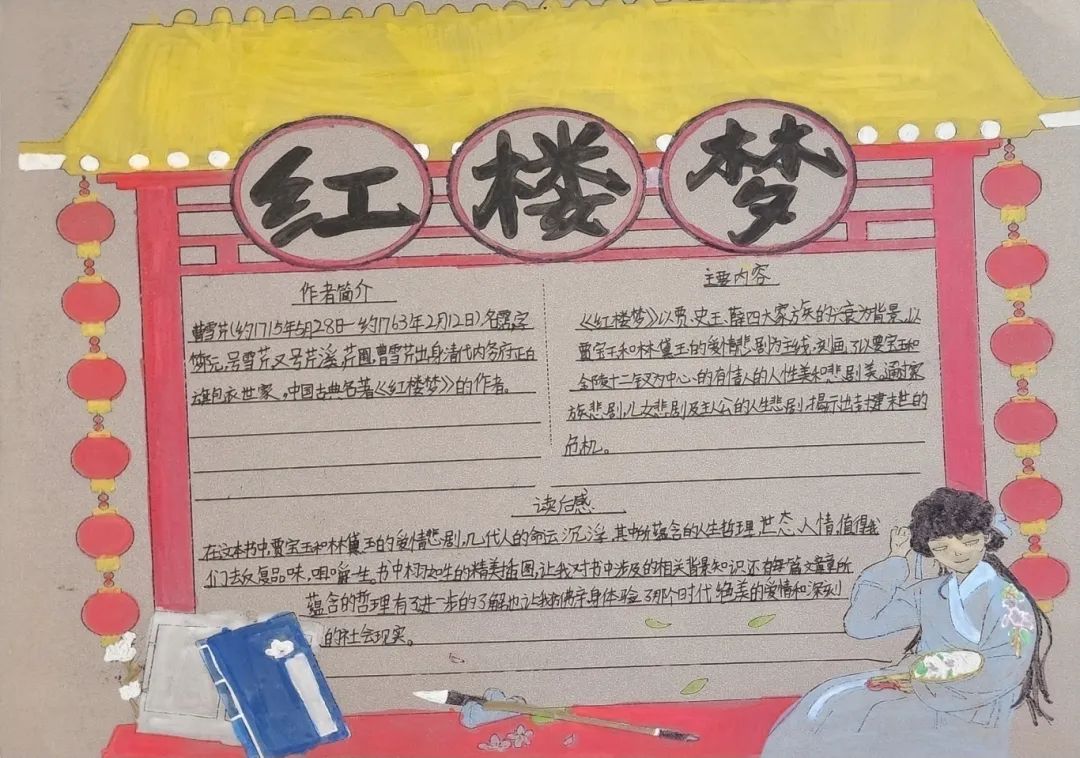 红楼梦
作者简介
曹雪芹(约1715年5月28日一约1763年2月12日)名霑,字
梦元,号雪芹,又号芹溪,芹圃,曹雪芹出身清代内务府正白
旗包衣世家,中国古典名著《红楼梦》的作者。
主要内容
《红楼梦》以贾、史、王、薛四大家族的兴衰为背景,以
贾宝玉和林黛玉的爱情悲剧为主线,刻画了以贾宝玉和
金陵十二钗为中心的有情人的人性美和悲剧美。通过家
族悲剧,儿女悲剧及主人公的人生悲剧,揭示出封建末世的
危机。
读后感
在这本书中,贾宝玉和林黛玉的爱情悲剧,几代人的命运沉浮,其中所蕴含的人生哲理,世态人情,值得我
们去反复品味,咀嚼一生。书中栩栩如生的精美插图,让我对书中涉及的相关背景知识还有每篇文章所
蕴含的哲理有了进一步的了解也让我仿佛亲身体验了那个时代绝美的爱情和深刻
的社会现实。